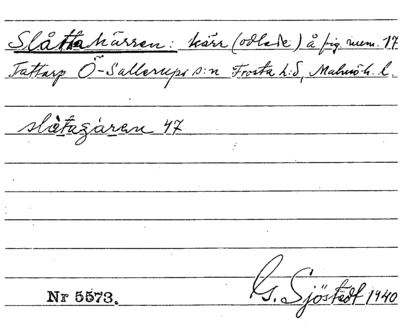 Slåttakärren: kärr (odlade) å fig. num. 17
Tattarp Ö-Sallerups s:n Frosta h:d, Malmöh. l.
slåtagáran 47
Nr 5573. G. Sjöstedt 1940